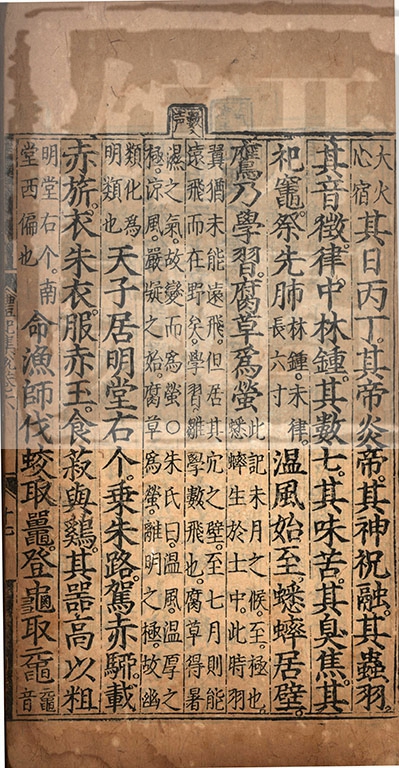 大火
心宿
其日丙丁。其帝炎帝。其神祝融。其蟲羽。
其音徵。律中林鍾。其數七。其味苦。其臭焦。其
祀竈。祭先肺
林鍾。未律。
長六寸
溫風始至。蟋蟀居壁。
鷹乃學習。腐草爲螢
此記未月之候。至。極也。
蟋蟀生於土中。此時羽
翼猶未能遠飛。但居其穴之壁。至七月則能
遠飛而在野矣。學習。雛學數飛也。腐草得暑
濕之氣。故變而爲螢○朱氏曰。溫風。溫厚之
極。涼風。嚴凝之始。腐草爲螢。離明之極。故幽
類化爲
明類也
天子居明堂右个。乘朱路。駕赤駵。載
赤旂。衣朱衣。服赤玉。食菽與鷄。其器高以粗
明堂右个。南
堂西偏也
命漁師伐蛟取鼉。登龜取黿
音
十七